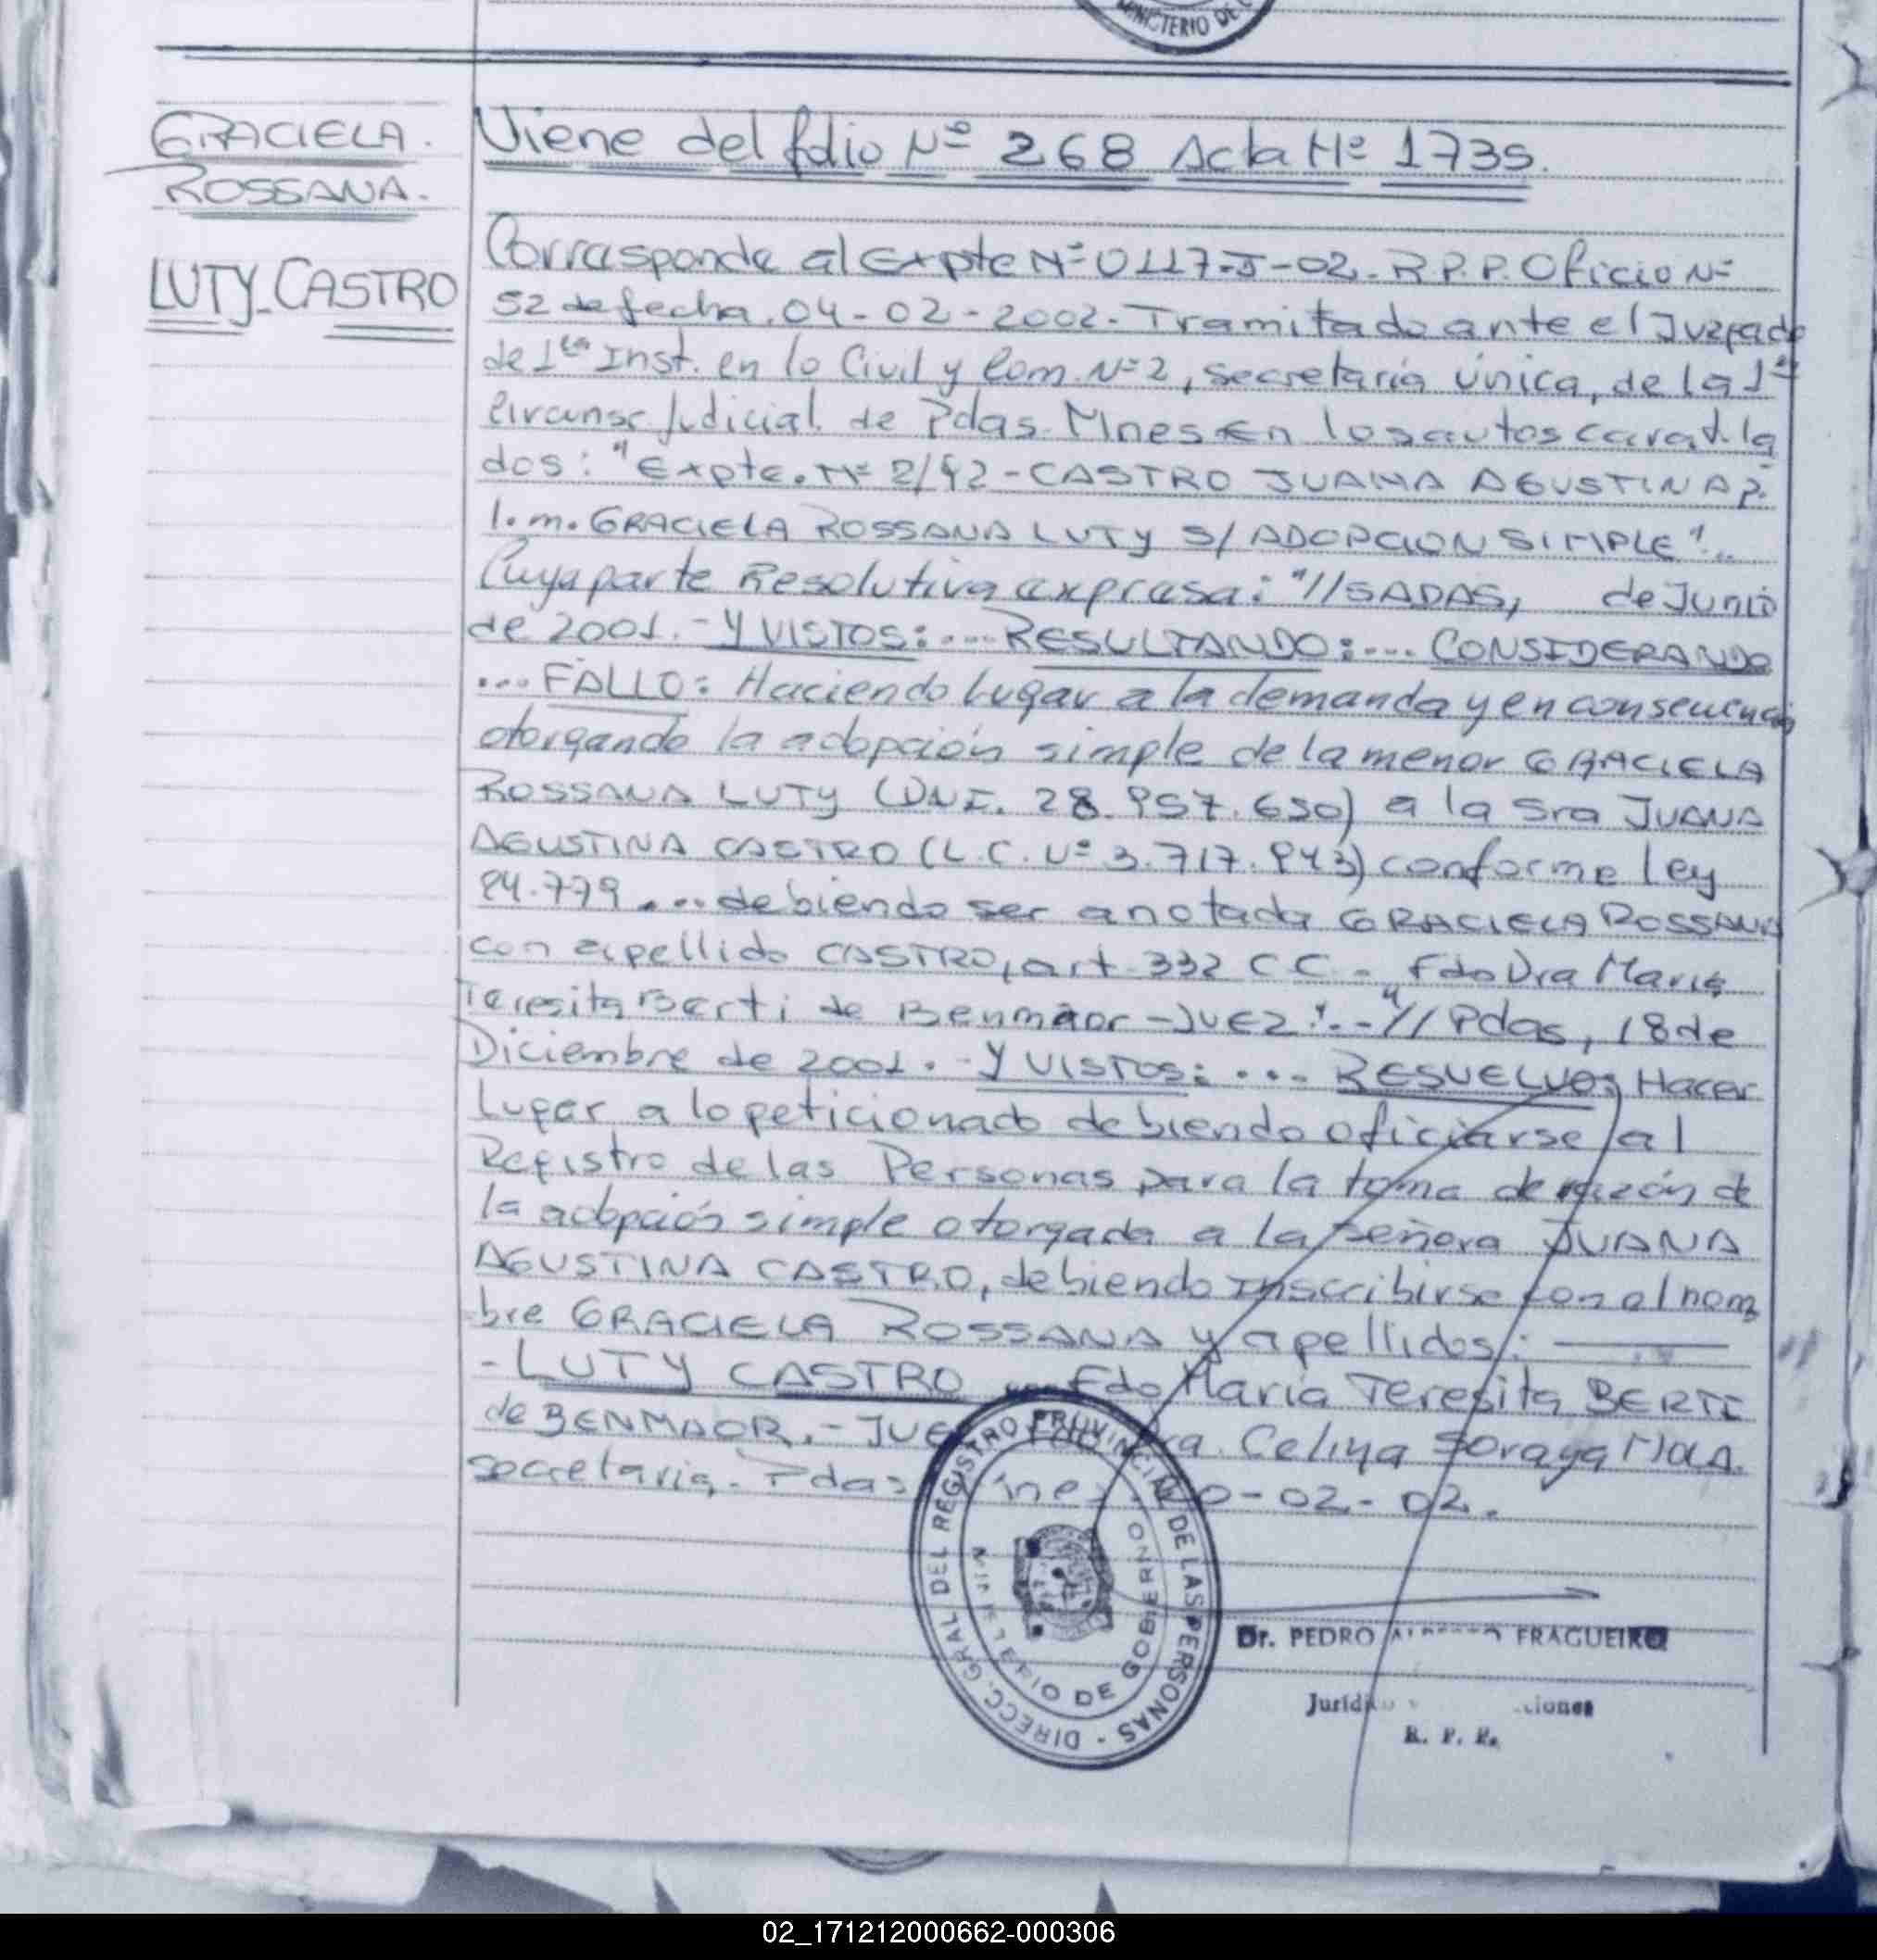 MINISTERIO DE
GRACIELA.
ROSSANA.
LUTY CASTRO
Viene del folio Nº 268 Acta Nº 1735.
Corresponde al Expte Nº 0117-J-02. R.P.P. Oficio Nº
52 de fecha 04-02-2002. Tramitado ante el Juzgado
de 1ra Inst. en lo Civil y Com. Nº 2, secretaría única, de la 1ª
Circunsc Judicial de Pdas. Mnes En los autos caratula
dos: "Expte. Nº 2/92 - CASTRO JUANA AGUSTINA P.
l.m. GRACIELA ROSSANA LUTY S/ ADOPCION SIMPLE"..
Cuya parte Resolutiva expresa: "//SADAS, de Junio
de 2001.- Y VISTOS:... RESULTANDO:... CONSIDERANDO
... FALLO: Haciendo lugar a la demanda y en consecuencia
otorgando la adopción simple de la menor GRACIELA
ROSSANA LUTY (DNI. 28.957.650) a la Sra JUANA
AGUSTINA CASTRO (L.C. Nº 3.717.943) conforme ley
24.779 .... debiendo ser anotada GRACIELA ROSSANA
con apellido CASTRO, art. 332 C C.- Fdo Dra María
Teresita Berti de Benmaor - JUEZ".- "// Pdas, 18 de
Diciembre de 2001.- Y VISTOS:... RESUELVO: Hacer
Lugar a lo peticionado debiendo oficiarse al
Registro de las Personas para la toma de razón de
la adopción simple otorgada a la señora JUANA
AGUSTINA CASTRO, debiendo inscribirse con el nom
bre GRACIELA ROSSANA y apellidos:
- LUTY CASTRO ... Fdo María Teresita BERTI
de BENMAOR.- JUEZ Fdo Dra. Celina Soraya
secretaria. Pdas 20-02-02.
DIRECC. GRAL DEL REGISTRO PROVINCIAL DE LAS PERSONAS
MINISTERIO DE GOBIERNO
Dr. PEDRO ALBERTO FRAGUEIRO
R. P. P.
02_171212000662-000306